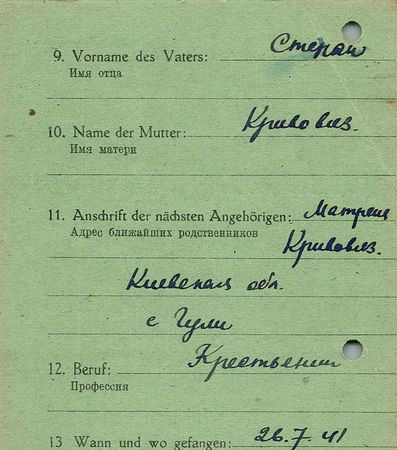 9. Vorname des Vaters: Степан
Имя отца
10. Name der Mutter: Кривовяз.
Имя матери
11. Anschrift der nächsten Angehörigen: Матрена
Адрес ближайших родственников Кривовяз.
Киевская обл.
с Гули
12. Beruf: Крестьянин
Профессия
13 Wann und wo gefangen: 26.7.41